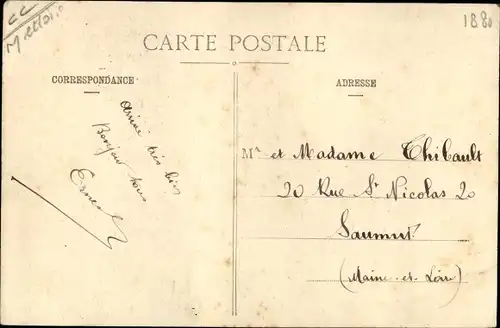 CC
1880
CARTE POSTALE
CORRESPONDANCE
ADRESSE
arrivé très bien
Bonjour tous
Ernest
Mr et Madame Thibault
20 Rue St Nicolas 20
Saumur
(Maine-et-Loire)